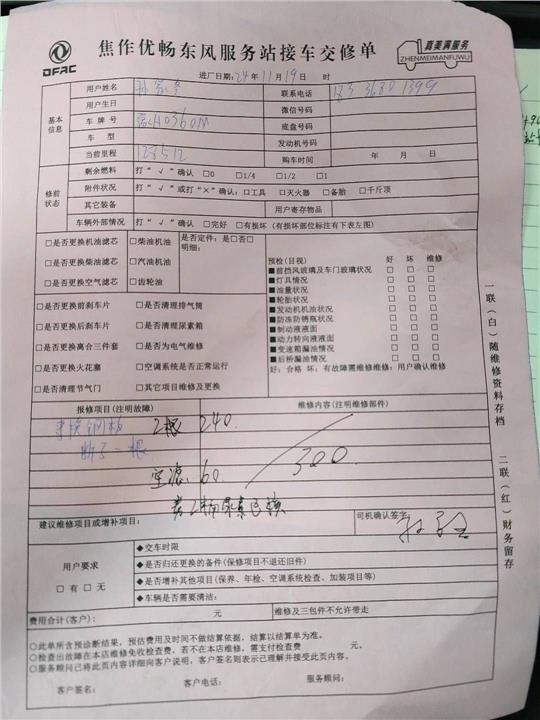 DFAC
焦作优畅东风服务站接车交修单
真美满服务
ZHENMEIMANFUWU
进厂日期: 24年 11月 19日 时
基本信息
用户姓名
联系电话 183 3680 1399
用户生日
微信号码
车牌号 H0360M
底盘号码
车型
发动机号码
当前里程 128512
购车时间 年 月 日
修前状态
剩余燃料 打“√”确认 □0 □1/4 □1/2 □1
附件状况 打“√”或打“×”确认: □工具 □灭火器 □备胎 □千斤顶
其它装备
用户寄存物品
车辆外部情况 打“√”确认 □完好 □有损坏(有损坏部位标注有下表左图)
□是否更换机油滤芯 □柴油机油 是否定件: 是□否□
明细:
□是否更换柴油滤芯 □汽油机油
□是否更换空气滤芯 □齿轮油
□是否更换前刹车片 □是否清理排气筒
□是否更换后刹车片 □是否清理尿素箱
□是否更换离合三件套 □是否为电气维修
□是否更换火花塞 □空调系统是否正常运行
□是否清理节气门 □其它项目维修及更换
预检(目视) 好 坏 维修
■前挡风玻璃及车门玻璃状况 □ □ □
■灯具情况 □ □ □
■油量状况 □ □ □
■轮胎状况 □ □ □
■发动机机油状况 □ □ □
■防冻防锈瓶状况 □ □ □
■制动液液面 □ □ □
■动力转向液液面 □ □ □
■变速箱漏油情况 □ □ □
■后桥漏油情况 □ □ □
好: 合格 坏: 有故障需维修维修: 用户确认维修
报修项目(注明故障)
维修内容(注明维修部件)
更换钢板 2根 240.
断了一根
空滤 60.
300
建议维修项目或增补项目:
司机确认签字:
用户要求
□有 □无
◆交车时限
◆是否归还更换的备件(保修项目不退还旧件)
◆是否增补其他项目(保养、年检、空调系统检查、加装项目等)
◆车辆是否需要清洁:
费用合计(客户): 元
维修及三包件不允许带走
○此单所含预诊断结果, 预估费用及时间不做结算依据, 结算以结算单为准。
○检查出故障在本店维修免收检查费, 若不在本店维修, 需支付检查费 元。
○服务顾问已将此页内容详细向客户说明, 客户签名则表示已理解并接受此页内容。
客户签名: 客户电话: 服务顾问:
一联(白)随维修资料存档
二联(红)财务留存